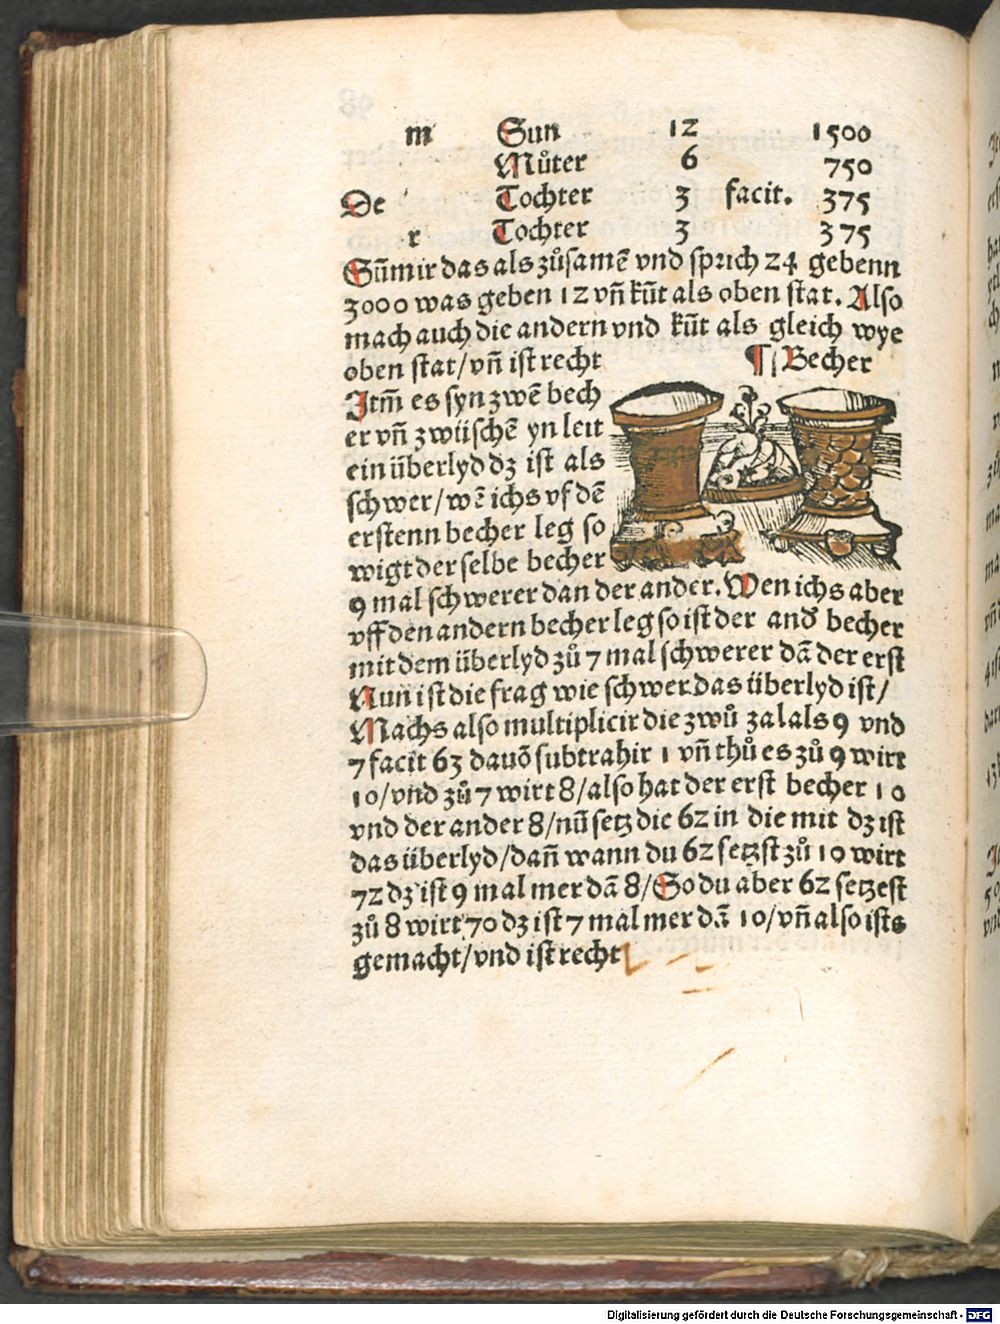 m Sun 12 1500
Můter 6 750
De Tochter 3 facit. 375
r Tochter 3 375
Sum̃ir das als zůsamẽ vnd sprich 24 gebenn
3000 was geben 12 vñ kũt als oben stat. Also
mach auch die andern vnd kũt als gleich wye
oben stat/ vñ ist recht ¶ Becher
Itm̃ es syn zwẽ bech
er vñ zwüschẽ yn leit
ein überlyd dz ist als
schwer/ wẽ ichs vf dẽ
erstenn becher leg so
wigt der selbe becher
9 mal schwerer dan der ander. Wen ichs aber
vff den andern becher leg so ist der and̕ becher
mit dem überlyd zů 7 mal schwerer dã der erst
Nun ist die frag wie schwer das überlyd ist/
Machs also multiplicir die zwů zal als 9 vnd
7 facit 63 dauõ subtrahir 1 vñ thů es zů 9 wirt
10/ vnd zů 7 wirt 8/ also hat der erst becher 10
vnd der ander 8/ nũ setz die 62 in die mit dz ist
das überlyd/ dañ wann du 62 setzst zů 10 wirt
72 dz ist 9 mal mer dã 8/ So du aber 62 setzest
zů 8 wirt 70 dz ist 7 mal mer dã 10/ vñ also ists
gemacht/ vnd ist recht
Digitalisierung gefördert durch die Deutsche Forschungsgemeinschaft - DFG